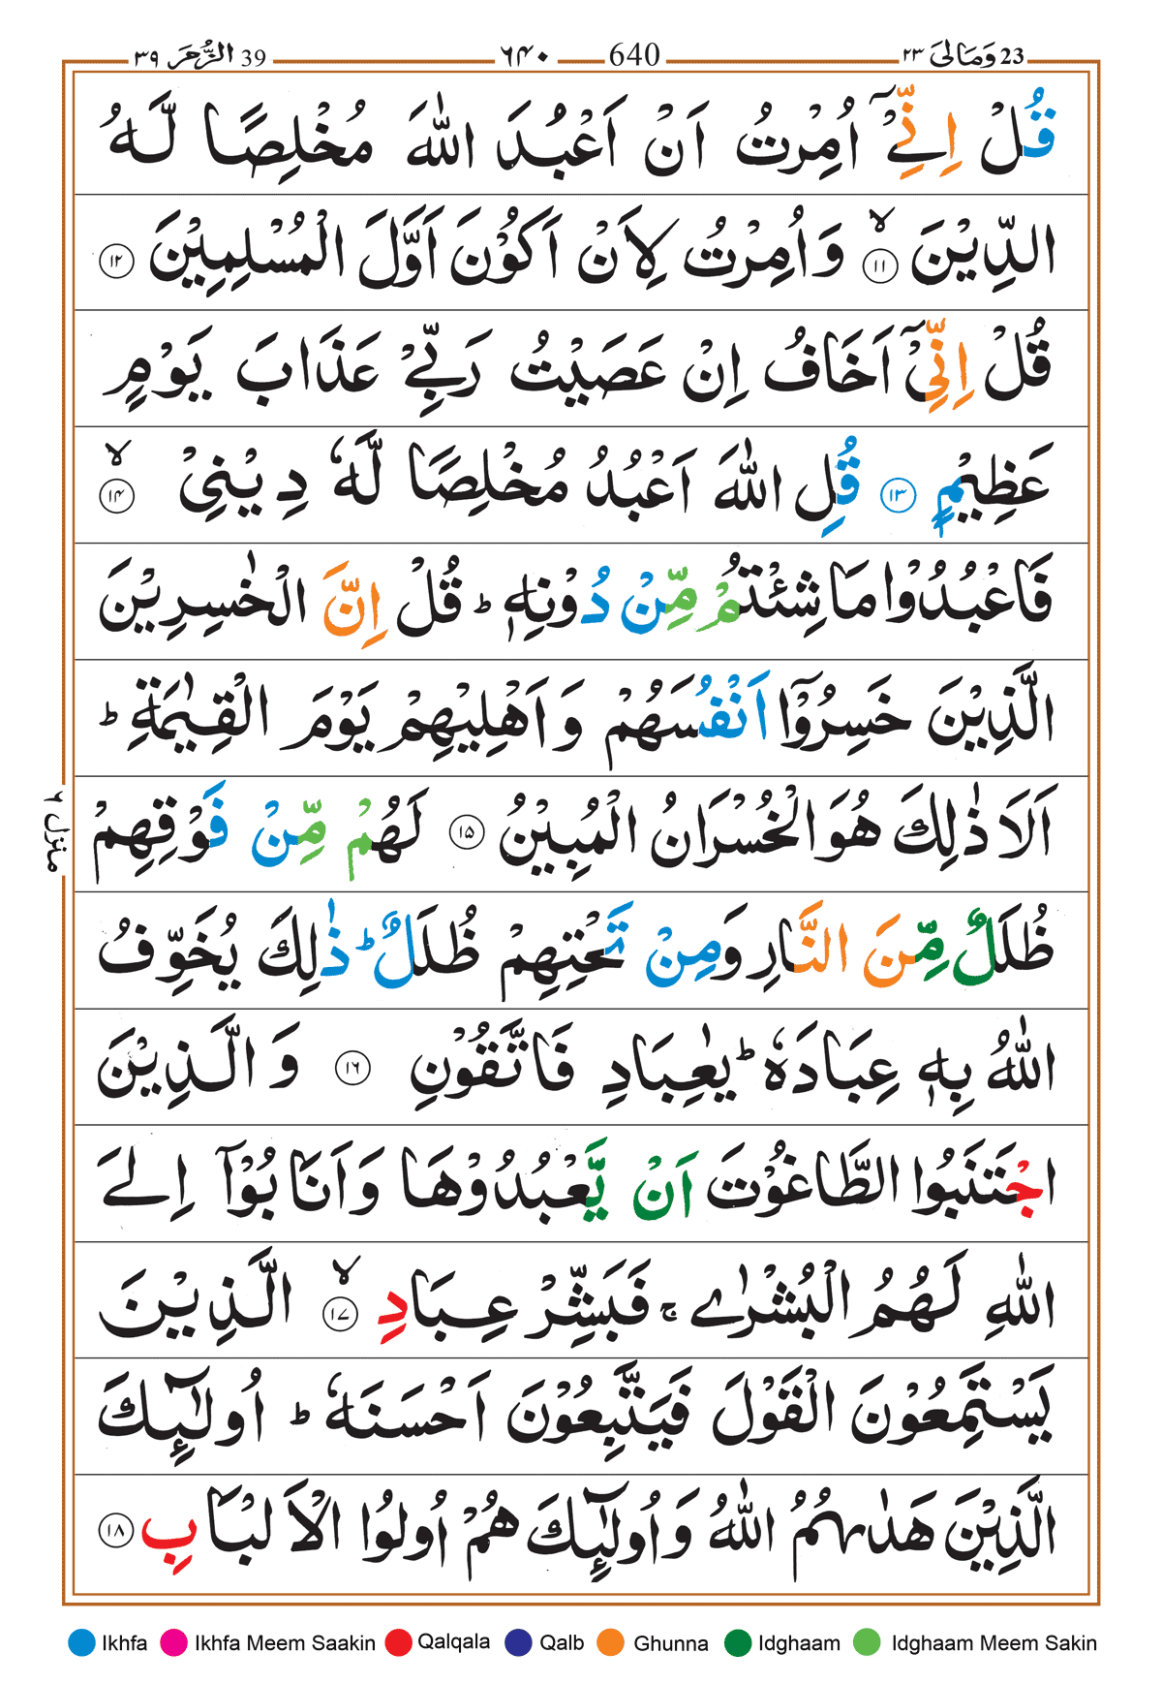 39 الزُّمَر ٣٩
٦٤٠ 640
23 وَمَالِیَ ٢٣
قُلْ اِنِّیْۤ اُمِرْتُ اَنْ اَعْبُدَ اللّٰهَ مُخْلِصًا لَّهُ
الدِّیْنَ ۙ﴿۱۱﴾ وَاُمِرْتُ لِاَنْ اَكُوْنَ اَوَّلَ الْمُسْلِمِیْنَ ﴿۱۲﴾
قُلْ اِنِّیْۤ اَخَافُ اِنْ عَصَیْتُ رَبِّیْ عَذَابَ یَوْمٍ
عَظِیْمٍ ﴿۱۳﴾ قُلِ اللّٰهَ اَعْبُدُ مُخْلِصًا لَّهٗ دِیْنِیْ ۙ﴿۱۴﴾
فَاعْبُدُوْا مَا شِئْتُمْ مِّنْ دُوْنِهٖ ؕ قُلْ اِنَّ الْخٰسِرِیْنَ
الَّذِیْنَ خَسِرُوْۤا اَنْفُسَهُمْ وَاَهْلِیْهِمْ یَوْمَ الْقِیٰمَةِ ؕ
اَلَا ذٰلِكَ هُوَ الْخُسْرَانُ الْمُبِیْنُ ﴿۱۵﴾ لَهُمْ مِّنْ فَوْقِهِمْ
منزل ٦
ظُلَلٌ مِّنَ النَّارِ وَمِنْ تَحْتِهِمْ ظُلَلٌ ؕ ذٰلِكَ یُخَوِّفُ
اللّٰهُ بِهٖ عِبَادَهٗ ؕ یٰعِبَادِ فَاتَّقُوْنِ ﴿۱۶﴾ وَالَّذِیْنَ
اجْتَنَبُوا الطَّاغُوْتَ اَنْ یَّعْبُدُوْهَا وَاَنَابُوْۤا اِلَی
اللّٰهِ لَهُمُ الْبُشْرٰی ۚ فَبَشِّرْ عِبَادِ ۙ﴿۱۷﴾ الَّذِیْنَ
یَسْتَمِعُوْنَ الْقَوْلَ فَیَتَّبِعُوْنَ اَحْسَنَهٗ ؕ اُولٰٓئِكَ
الَّذِیْنَ هَدٰىهُمُ اللّٰهُ وَاُولٰٓئِكَ هُمْ اُولُوا الْاَلْبَابِ ﴿۱۸﴾
Ikhfa Ikhfa Meem Saakin Qalqala Qalb Ghunna Idghaam Idghaam Meem Sakin